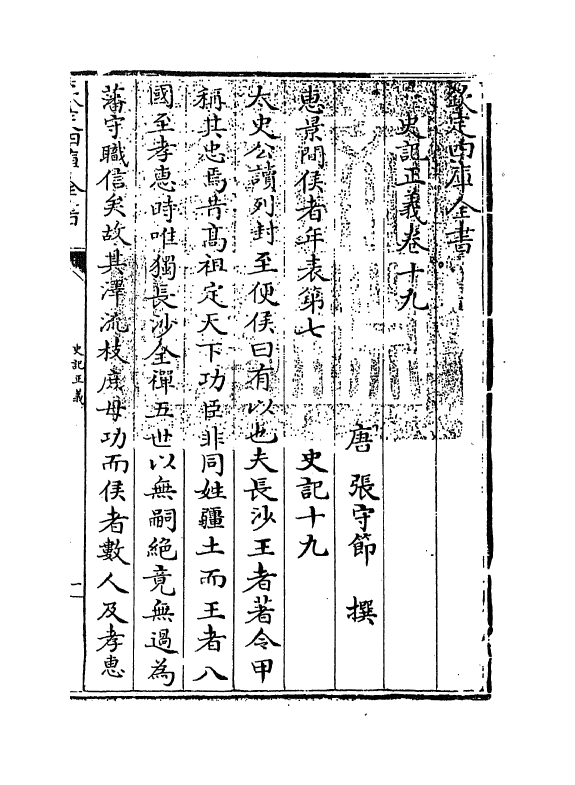 欽定四庫全書
史記正義卷十九
唐 張守節 撰
惠景間侯者年表第七 史記十九
太史公讀列封至便侯曰有以也夫長沙王者著令甲
稱其忠焉昔髙祖定天下功臣非同姓疆土而王者八
國至孝惠時唯獨長沙全禪五世以無嗣絶竟無過為
藩守職信矣故其澤流枝庶毋功而侯者數人及孝惠
欽定四庫全書
史記正義
一